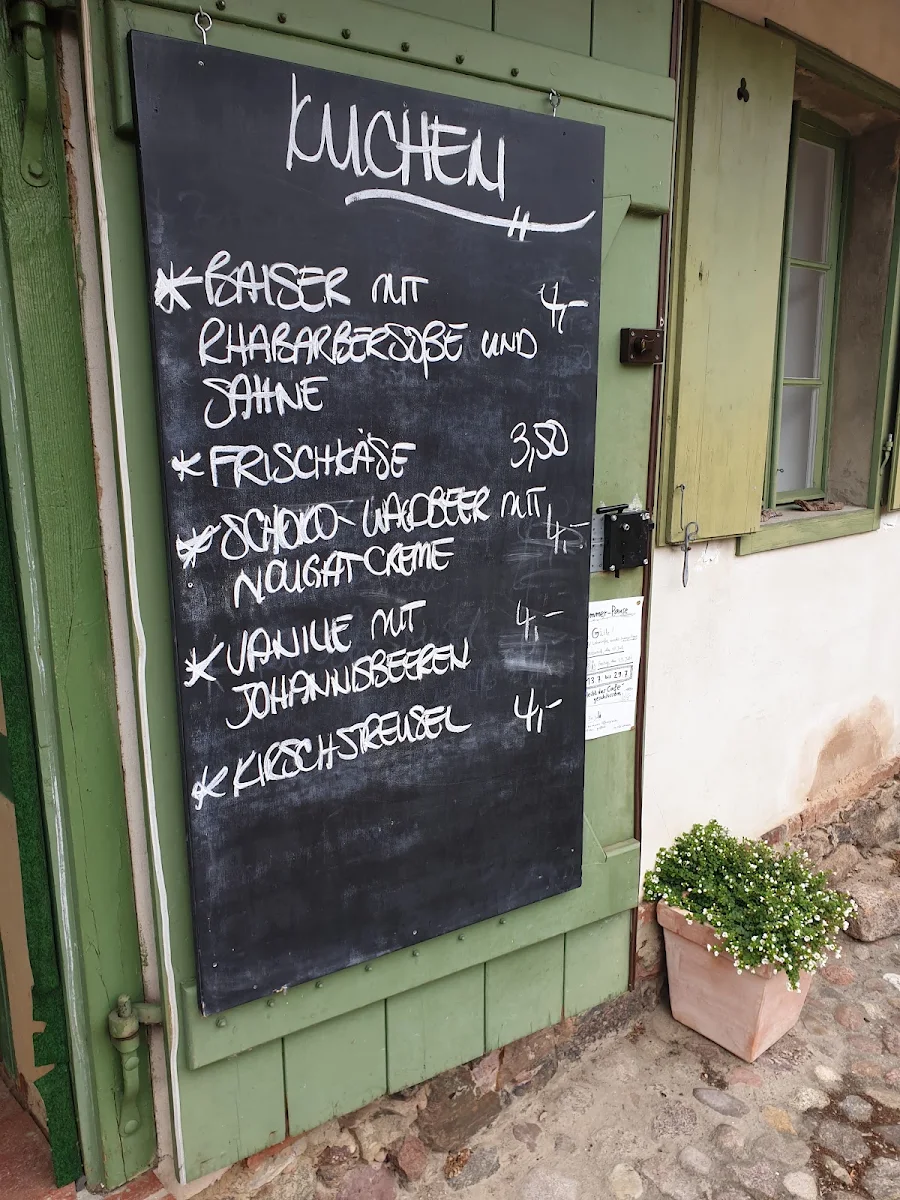 KUCHEN
* BAISER MIT 4,-
RHABARBERSOßE UND
SAHNE
* FRISCHKÄSE 3,50
* SCHOKO-WALDBEER MIT 4,-
NOUGATCREME
* VANILLE MIT 4,-
JOHANNISBEEREN
* KIRSCHSTREUSEL 4,-
mmer-Pause